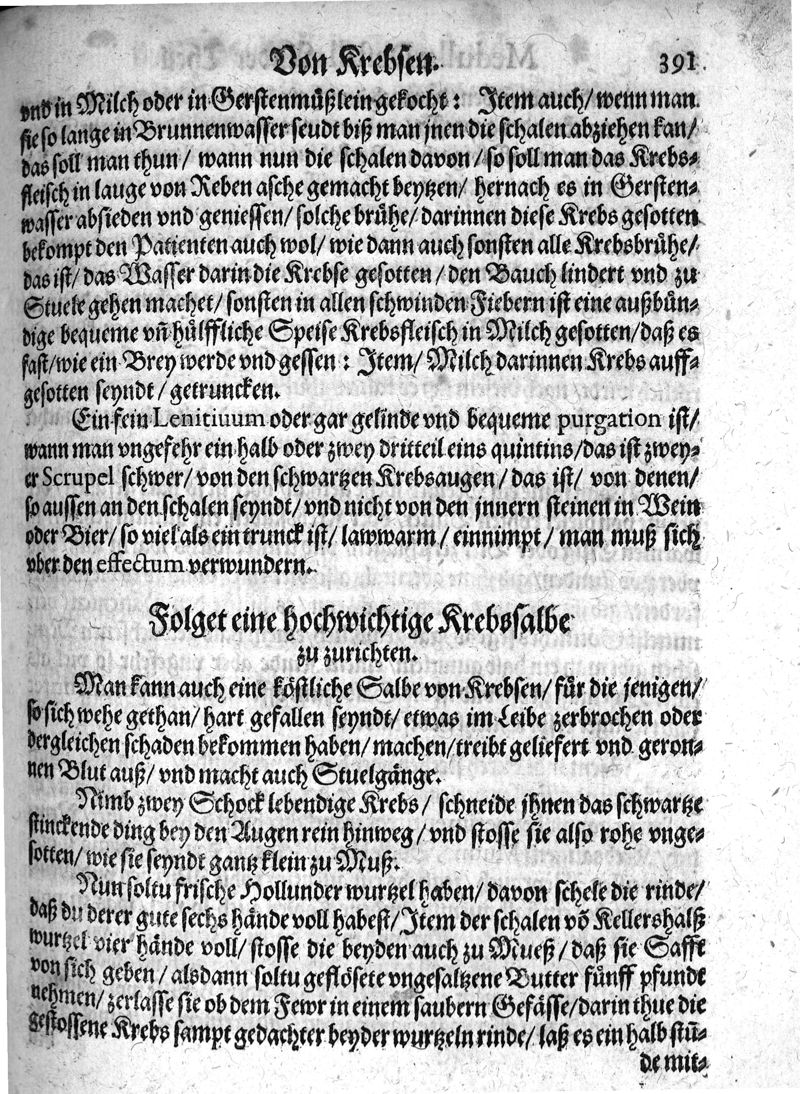 Von Krebsen. 391
vnd in Milch oder in Gerstenmüßlein gekocht: Item auch/ wenn man
sie so lange in Brunnenwasser seudt biß man jnen die schalen abziehen kan/
das soll man thun/ wann nun die schalen davon/ so soll man das Krebs-
fleisch in lauge von Reben asche gemacht beytzen/ hernach es in Gersten-
wasser absieden vnd geniessen/ solche brühe/ darinnen diese Krebs gesotten
bekompt den Patienten auch wol/ wie dann auch sonsten alle Krebsbrühe/
das ist/ das Wasser darin die Krebse gesotten/ den Bauch lindert vnd zu
Stuele gehen machet/ sonsten in allen schwinden Fiebern ist eine außbün-
dige bequeme vn̄ hülffliche Speise Krebsfleisch in Milch gesotten/ daß es
fast/ wie ein Brey werde vnd gessen: Item/ Milch darinnen Krebs auff-
gesotten seyndt/ getruncken.
Ein fein Lenitiuum oder gar gelinde vnd bequeme purgation ist/
wann man vngefehr ein halb oder zwey dritteil eins quintins/ das ist zwey-
er Scrupel schwer/ von den schwartzen Krebsaugen/ das ist/ von denen/
so aussen an den schalen seyndt/ vnd nicht von den jnnern steinen in Wein
oder Bier/ so viel als ein trunck ist/ lawwarm/ einnimpt/ man muß sich
vber den effectum verwundern.
Folget eine hochwichtige Krebssalbe
zu zurichten.
Man kann auch eine köstliche Salbe von Krebsen/ für die jenigen/
so sich wehe gethan/ hart gefallen seyndt/ etwas im Leibe zerbrochen oder
dergleichen schaden bekommen haben/ machen/ treibt geliefert vnd geron-
nen Blut auß/ vnd macht auch Stuelgänge.
Nimb zwey Schock lebendige Krebs/ schneide jhnen das schwartze
stinckende ding bey den Augen rein hinweg/ vnd stosse sie also rohe vnge-
sotten/ wie sie seyndt gantz klein zu Muß.
Nun soltu frische Hollunder wurtzel haben/ davon schele die rinde/
daß du derer gute sechs hände voll habest/ Item der schalen vō Kellershalß
wurtzel vier hände voll/ stosse die beyden auch zu Mueß/ daß sie Safft
von sich geben/ alsdann soltu geflösete vngesaltzene Butter fünff pfundt
nehmen/ zerlasse sie ob dem Fewr in einem saubern Gefässe/ darin thue die
gestossene Krebs sampt gedachter beyder wurtzeln rinde/ laß es ein halb stū-
de mit-